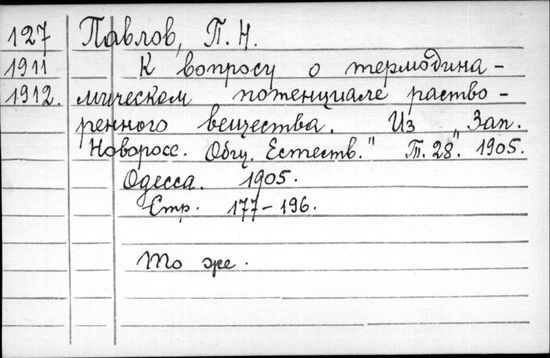 127 Павлов, П. Н.
1911 К вопросу о термодина-
1912. мическом потенциале раство-
ренного вещества. Из „Зап.
Новоросс. Общ. Естеств." Т. 28. 1905.
Одесса. 1905.
Стр. 177-196.
То же.